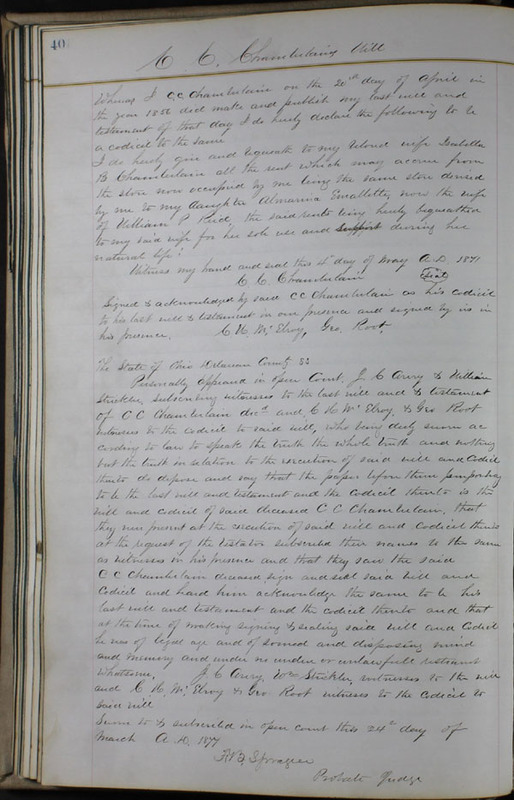 40
C. C. Chamberlains Will
Whereas I CC Chamberlain on the 20th day of April in
the year 1858 did make and publish my last will and
testament of that day I do hereby declare the following to be
a codicil to the same
I do hereby give and bequeath to my beloved wife
B Chamberlain all the rent which may accrue from
the store now occupied by me being the same store devised
by me to my daughter now the wife
of William P Reid the said rents being hereby bequeathed
to my said wife for her sole use and support during her
natural life
Witness my hand and seal this 4th day of May A.D. 1871
C. C. Chamberlain Seal
Signed & acknowledged by said CC Chamberlain as his codicil
to his last will & testament in our presence and signed by us in
his presence, C. H. McElroy, Geo. Root
The State of Ohio Delaware County SS
Personally Appeared in open Court, J. C Avery & William
Stickley subscribing witnesses to the last will and testament
of C C Chamberlain decd and C H McElroy & Geo Root
witnesses to the Codicil to said will, who being duly sworn ac
cording to law to speak the truth the whole truth and nothing
but the truth in relation to the execution of said will and Codicil
thereto do depose and say that the paper before them purporting
to be the last will and testament and the Codicil thereto is the
will and codicil of said deceased C C Chamberlain, that
they were present at the execution of said will and Codicil thereto
at the request of the testator subscribed their names to the same
as witnesses in his presence and that they saw the said
C C Chamberlain deceased sign and seal said will and
Codicil and heard him acknowledge the same to be his
last will and testament and the codicil thereto and that
at the time of making signing & sealing said will and Codicil
he was of legal age and of sound and disposing mind
and memory and under no undue or unlawfull restraint
Whatsoever, J. C Avery, Wm Stickley witnesses to the will
and C. H. McElroy & Geo Root witnesses to the Codicil to
said will
Sworn to & subscribed in open court this 24th day of
March A.D. 1877
F. B. Sprague
Probate Judge